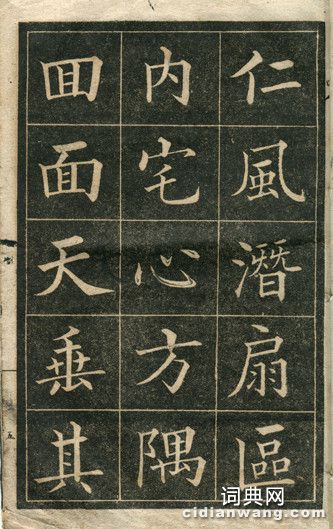 仁風潛扇區
内宅心方隅
囬面天垂其
五
词典网
cidianwang.com